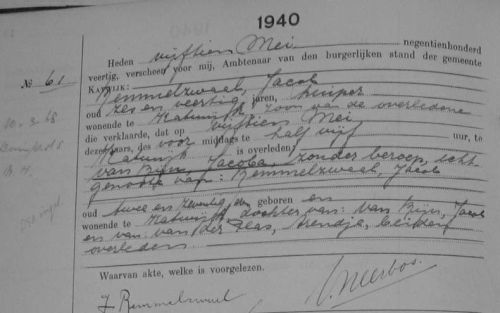 1940
Heden vijftien Mei negentienhonderd
veertig, verscheen voor mij, Ambtenaar van den burgerlijken stand der gemeente
Nº 61
KATWIJK: Remmelzwaal, Jacob
oud zes en veertig jaren, kuiper
wonende te Katwijk, zoon van de overledene
die verklaarde, dat op vijftien Mei
dezes jaars, des voor middags te half vijf nur, te
Katwijk is overleden:
van Rijn, Jacoba, zonder beroep, echt
genoote van: Remmelzwaal, Jacob
oud twee en zeventig geboren en
wonende te Katwijk, dochter van: van Rijn, Jacob
en van: van der Plas, Arendje, beiden
overleden.
Waarvan akte, welke is voorgelezen.
J Remmelzwaal